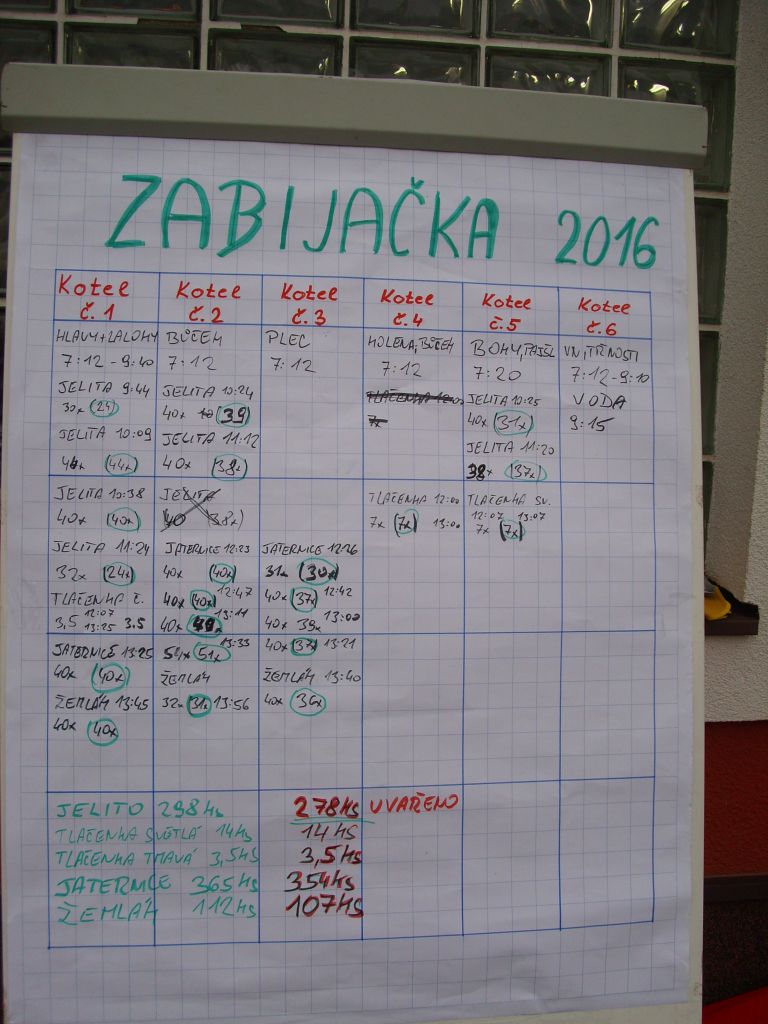 ZABIJAČKA 2016
Kotel č.1 Kotel č.2 Kotel č.3 Kotel č.4 Kotel č.5 Kotel č.6
HLAVY+ZALOHY BŮČEK PLEC KOLENA, BŮČEK BOKY, VNITŘNOSTI
7:12-9:40 7:12 7:12 7:12 7:20 7:12-9:10
JELITA 9:44 JELITA 10:24 TLAČENKA 12:00 JELITA 10:25 VODA
30x (24) 40x (39) 7x 40x (31x) 9:15
JELITA 10:09 JELITA 11:12 JELITA 11:20
(44x) 40x (38x) 38x (37x)
JELITA 10:38 JELITA TLAČENKA 12:00 TLAČENKA SV.
40x (40x) 40 38x) 7x (7x) 13:00 12:07 13:07
7x (7x)
JELITA 11:24 JATERNICE 12:23 JATERNICE 12:26
32x (24x) 40x (40x) 31x (30x)
TLAČENKA Č. 40x (40x) 12:47 40x (37x) 12:42
3,5 12:07 13:25 3.5 40x 13:11 40x 39x 13:00
JATERNICE 13:25 51x 13:33 40x (37x) 13:21
40x (40x) ŽEMLÁK ŽEMLÁK 13:40
ŽEMLÁK 13:45 32x (31x) 13:56 40x (36x)
40x (40x)
JELITO 298ks 278ks UVAŘENO
TLAČENKA SVĚTLÁ 14ks 14ks
TLAČENKA TMAVÁ 3,5ks 3,5ks
JATERNICE 365ks 354ks
ŽEMLÁK 112ks 107ks